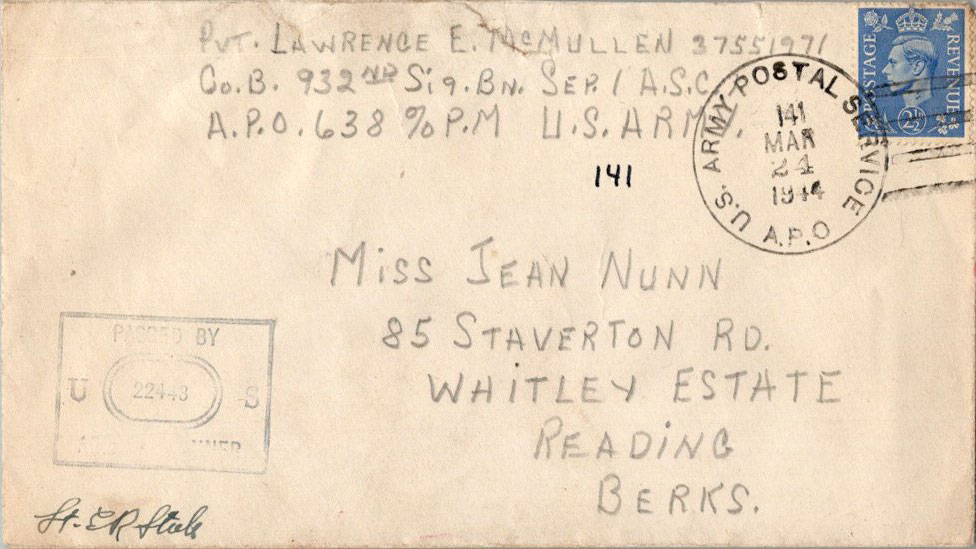 Pvt. Lawrence E. McMullen 37551971
Co. B. 932ND Sig. Bn. Sep. / A.S.C.
A.P.O. 638 % P.M U.S. ARMY.
141
POSTAGE REVENUE
2½
U.S. ARMY POSTAL SERVICE
141
MAR
24
1944
A.P.O
Miss Jean Nunn
85 Staverton Rd.
Whitley Estate
Reading
Berks.
PASSED BY
U 22443 S
Lt. E R